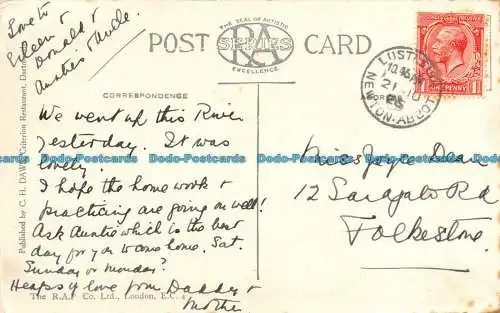 Love to
Eileen &
Donald &
Auntie & Uncle.
THE SEAL OF ARTISTIC
POST CARD
RA
SERIES
EXCELLENCE
LUSTLEIGH
NEWTON-ABBOT
ONE PENNY
CORRESPONDENCE
We went up this River
yesterday. It was
lovely.
I hope the home work &
practising are going on well!
Ask Auntie which is the best
day for you to come home. Sat.
Sunday or Monday?
Heaps of love from Daddy &
Mother
Miss Joyce Dean
12 Saragato Rd
Folkestone.
Published by C. H. DAW, Caterina Restaurant,
The R.A.P Co. Ltd., London, E.C. 4
Dodo-Postcards Dodo-Postcards Dodo-Postcards Dodo-Postcards